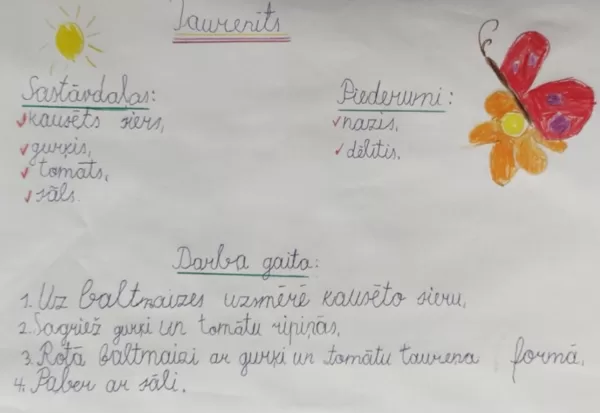 Taurenīts
Sastāvdaļas:
kausēts siers,
gurķis,
tomāts,
sāls.
Piederumi:
nazis,
dēlītis.
Darba gaita:
1. Uz baltmaizes uzsmērē kausēto sieru,
2. Sagriež gurķi un tomātu ripiņās,
3. Rotā baltmaizi ar gurķi un tomātu taureņa formā,
4. Paber ar sāli.